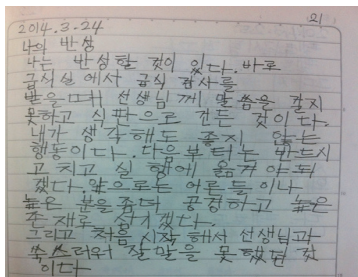 21
2014.3.24
나의 반성
나는 반성할 것이 있다. 바로
급식실에서 급식 검사를
받을때 선생님께 말씀을 갖지
못하고 식판으로 건든 것이다.
내가 생각해도 좋지 않는
행동이다. 다음부터는 반드시
고치고 실행에 옮겨야 되
겠다. 앞으로는 어른들이나
높은 분을 좀더 공경하고 높은
존재도 섬기겠다.
그리고 처음 시작해서 선생님과
쑥스러워 잘 말을 못했던 것
이다